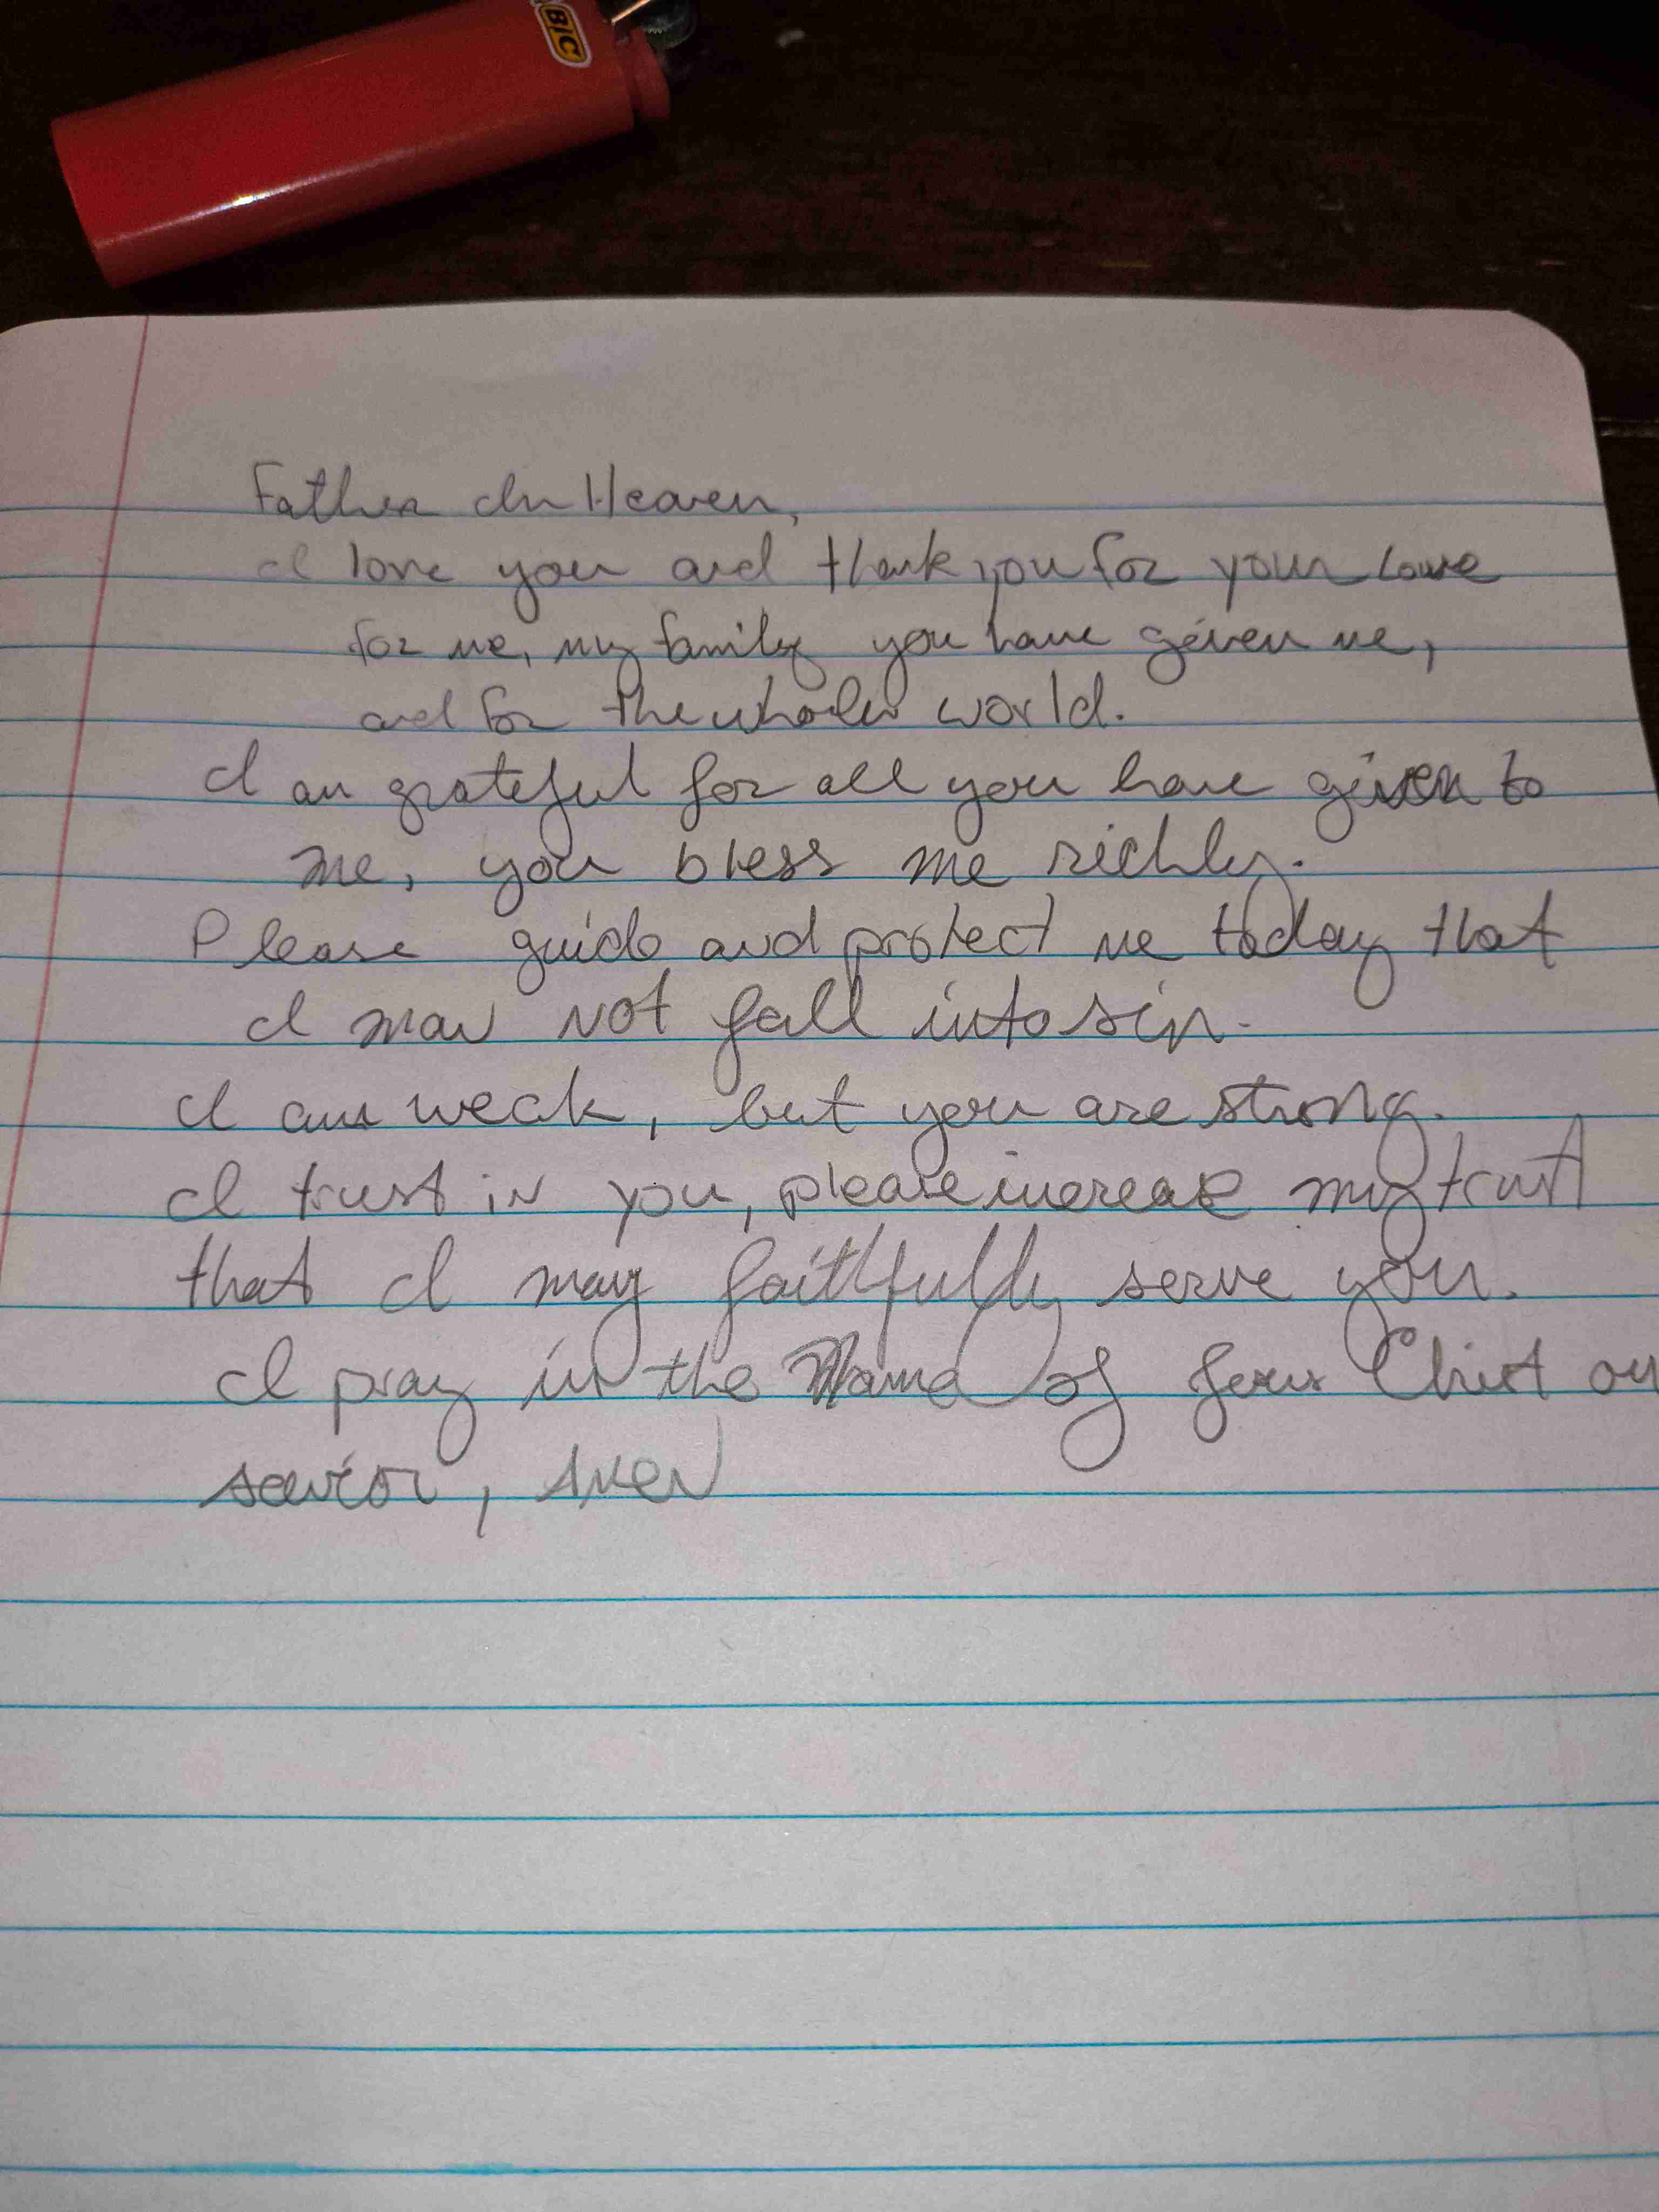 BIC
Father In Heaven,
I love you and thank you for your love
for me, my family you have given me,
and for the whole world.
I am grateful for all you have given to
me, you bless me richly.
Please guide and protect me today that
I may not fall into sin.
I am weak, but you are strong.
I trust in you, please increase my trust
that I may faithfully serve you.
I pray in the Name of Jesus Christ ou
savior, Amen